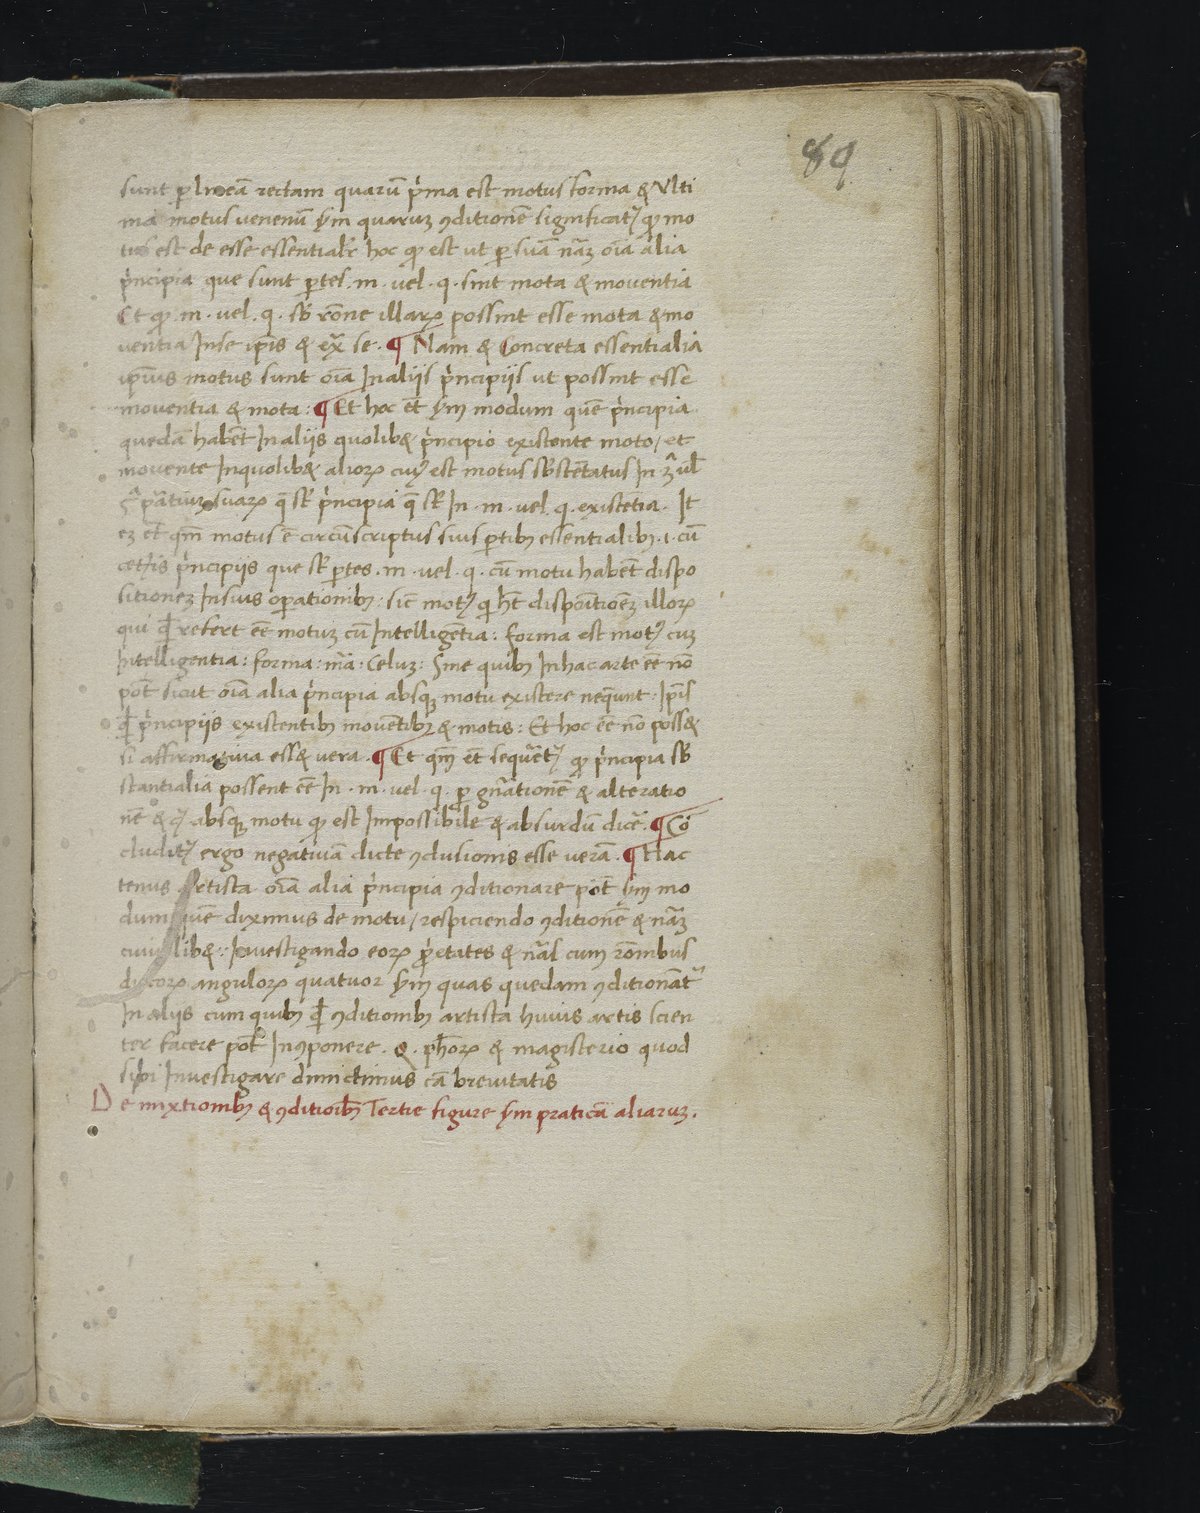 89
sunt p lineā rectam quarū pⁱma est motus forma & Vlti
ma motus venenū sȝm quaruȝ ꝯditionē significatꝰ qꝫ mo
tus est de esse essentialr̄ hoc qꝫ est ut p suā nāȝ oīa alia
pⁱncipia que sunt ptes .m. vel .q. sint mota & moventia
Et qꝫ .m. vel .q. sb̄ rōne illaꝝ possint esse mota & mo
ventia Inse ipīs & ex̄ se. ¶ Nam & Concreta essentialia
ipīus motus sunt oīa Inaliis pⁱncipiis ut possint esse
moventia & mota: ¶ Et hoc et̄ sȝm modum quē pⁱncipia
quedā habēt Inaliis quolib& pⁱncipio existente moto / et
movente Inquolib& alioꝝ cuiꝰ est motus sb̄stētatus In
suaꝝ q̄ st̄ pⁱncipia q̄ st̄ In .m. vel .q. existētia. It
eȝ et̄ qm̄ motus ē circūscriptus suis ptibȝ essentialibȝ .i. cū
cetⁱis pⁱncipiis que st̄ ptes .m. vel .q. cū motu habēt dispo
sitioneȝ Insuis opationibȝ: sic̄ motꝰ q̄ hēt dispoītioēȝ illoꝝ
qui qd̄ refert eē motuȝ cū Intelligētia: forma est motꝰ cuȝ
Intelligentia: forma: mā: Celuȝ: Sine quibȝ Inhac arte eē nō
pōt sicut oīa alia pⁱncipia absqꝫ motu existere neq̄unt: Ipīs
qd̄ pⁱncipiis existentibȝ movētibȝ & motis: Et hoc eē nō poss&
si affirmativa ess& vera. ¶ Et qm̄ et̄ sequēt̄ꝰ qꝫ pⁱncipia sb̄
stantialia possent eē In .m. vel .q. p gn̄ationē & alteratio
nē & absqꝫ motu qꝫ est Impossibile & absurdū dicē. ¶ Cō
cluditꝰ ergo negativā dicte ꝯclusionis esse verā. ¶ Hac
tenus Artista oīa alia pⁱncipia ꝯditionare pōt sȝm mo
dum quē diximus de motu / respiciendo ꝯditionē & nāȝ
cuiuslib&: Investigando eoꝝ pⁱetates & nāl cum rōnibus
dictoꝝ anguloꝝ quatuor sȝm quas quedam ꝯditionātꝰ
In aliis cum quibȝ qd̄ ꝯditionibȝ artista huius artis scien
ter facere pōt Inꝯponere. Q. ph̄oꝝ & magisterio quod
sibi Investigare dimictimus cā brevitatis
De mixtionibȝ & ꝯditioībȝ Tertie figure sȝm praticā aliaruȝ.